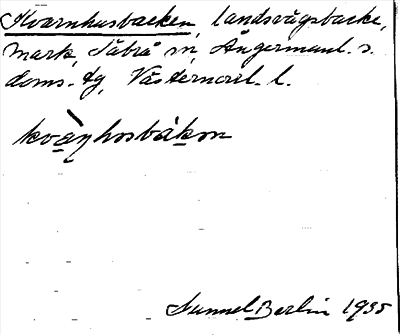 Kvarnhusbacken, landsvägsbacke,
mark, Säbrå sn, Ångermanl. s.
doms. tg, Västernorrl. l.
kvàṇhosbákon
Gunnel Berlin 1935